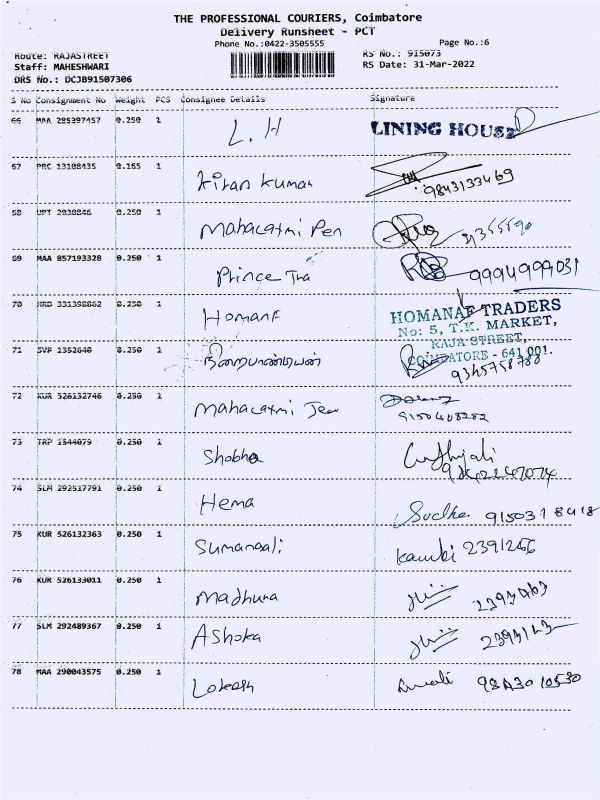 THE PROFESSIONAL COURIERS, Coimbatore
Delivery Runsheet - PCT
Phone No.:0422-3505555 Page No.:6
Route: RAJASTREET RS No.: 915073
Staff: MAHESHWARI RS Date: 31-Mar-2022
DRS No.: DCJB91507306
S No Consignment No Weight PCS Consignee Details Signature
66 MAA 285397457 0.250 1 L.H LINING HOUSE
67 PRC 13108435 0.165 1 Kiran Kumar 9843133469
68 UPT 2030846 0.250 1 Mahalaxmi Pen
69 MAA 857193328 0.250 1 Prince Tra 9994999031
70 HRD 331398862 0.250 1 Homanf HOMANAF TRADERS
No: 5, T.K. MARKET,
RAJA STREET,
COIMBATORE - 641 001.
71 SVP 1352640 0.250 1 நிறைபாண்டியன் 9345758788
72 KUR 526132746 0.250 1 Mahalaxmi Jew
9150408282
73 TRP 1544079 0.250 1 Shobha
74 SLM 292517791 0.250 1 Hema Sudha 9150318418
75 KUR 526132363 0.250 1 Sumangali 2391266
76 KUR 526133011 0.250 1 Madhura
77 SLM 292489367 0.250 1 Ashoka
78 MAA 290043575 0.250 1 Lokesh